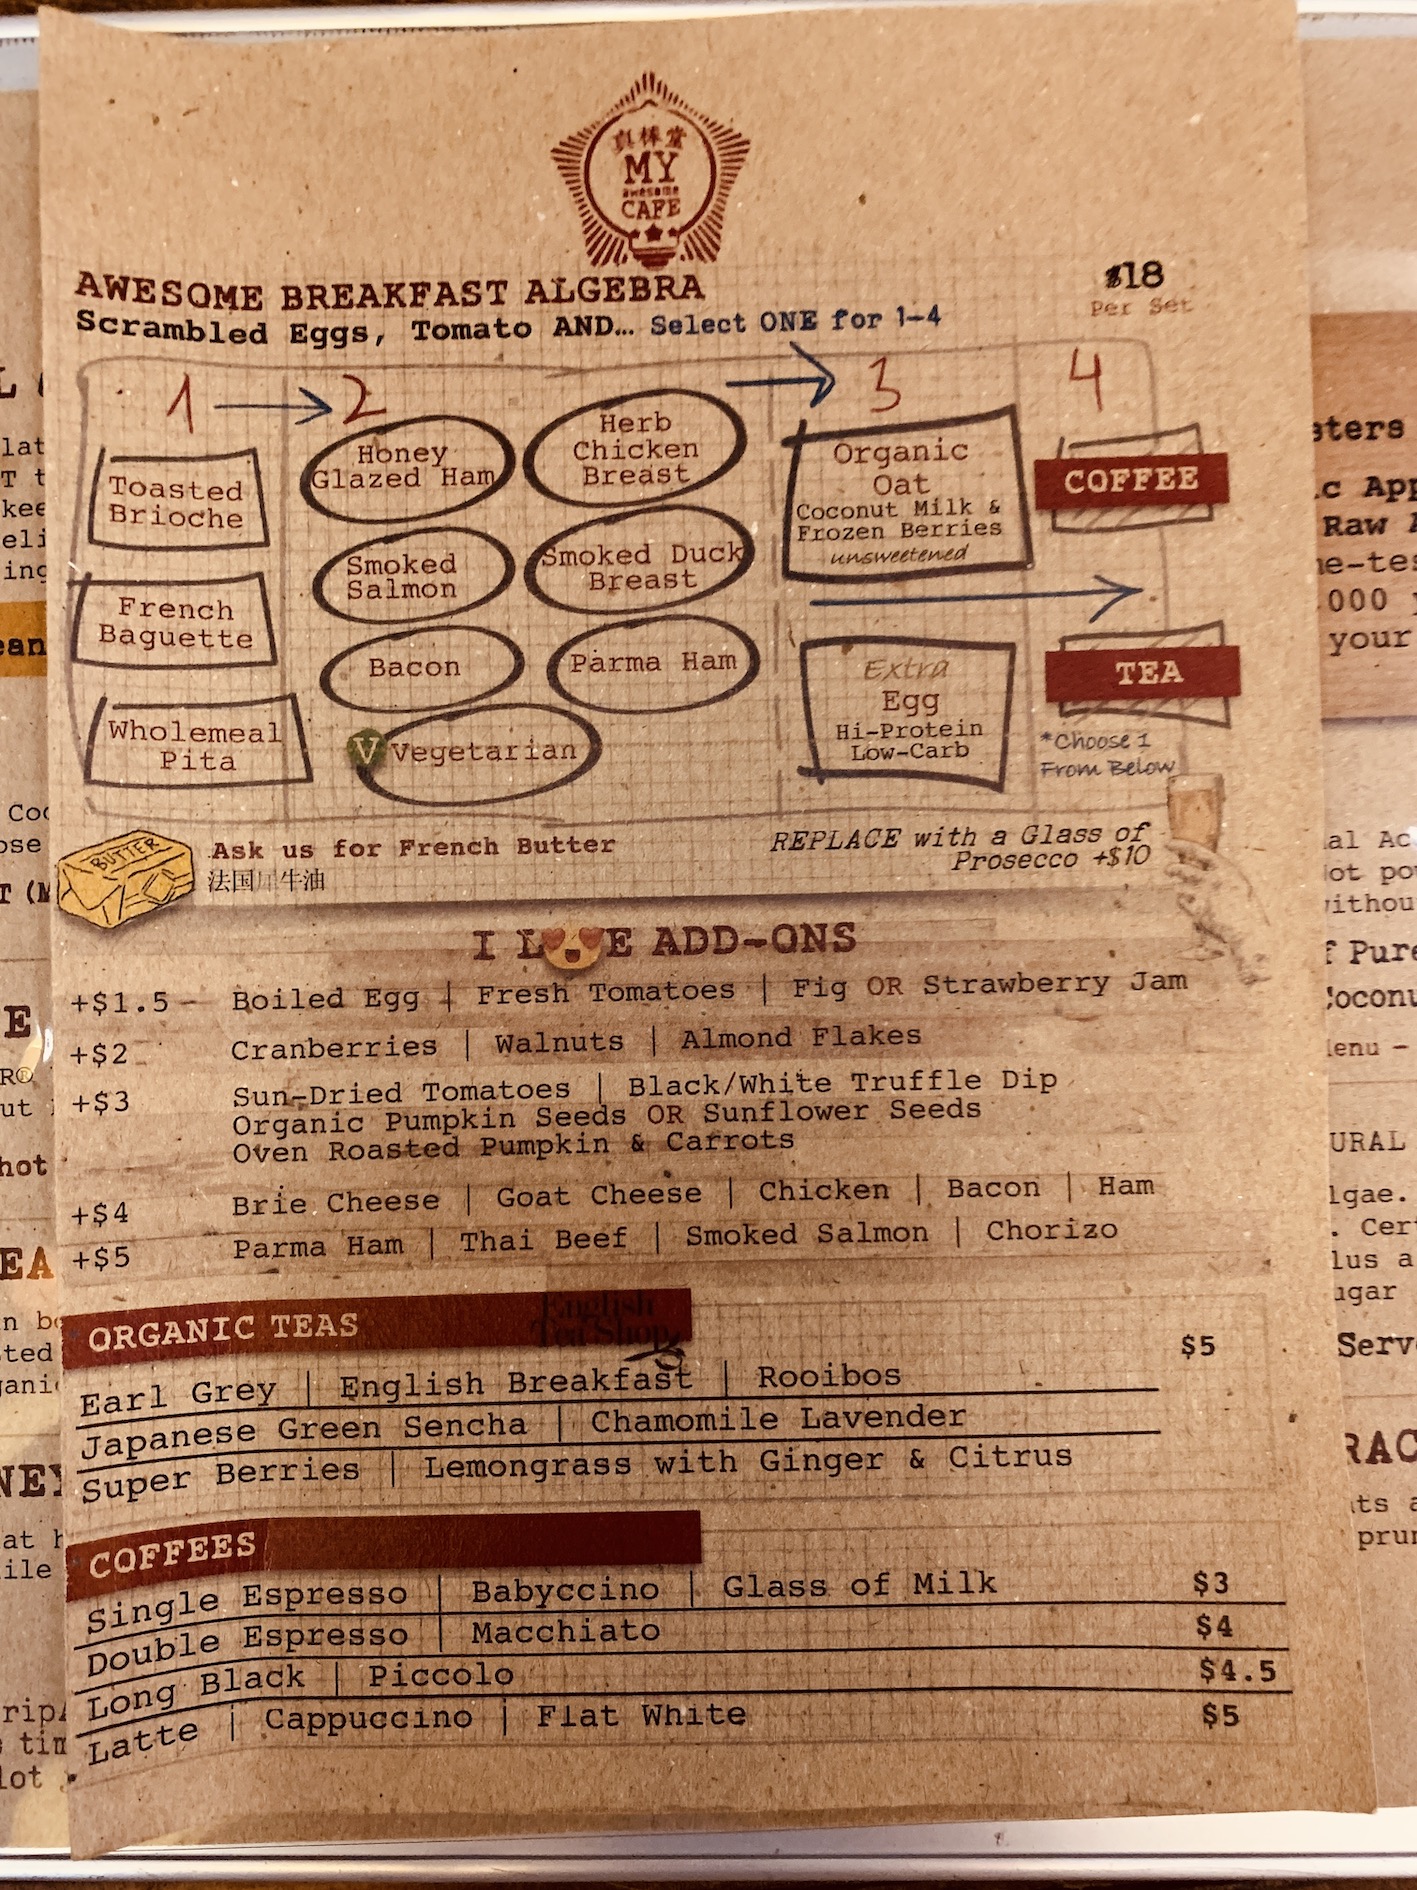 真棒堂
MY
awesome
CAFE
AWESOME BREAKFAST ALGEBRA
$18
Per Set
Scrambled Eggs, Tomato AND… Select ONE for 1-4
1
2
3
4
Toasted
Brioche
French
Baguette
Wholemeal
Pita
Honey
Glazed Ham
Herb
Chicken
Breast
Smoked
Salmon
Smoked Duck
Breast
Bacon
Parma Ham
V Vegetarian
Organic
Oat
Coconut Milk &
Frozen Berries
unsweetened
Extra
Egg
Hi-Protein
Low-Carb
COFFEE
TEA
*Choose 1
From Below
BUTTER
Ask us for French Butter
法国 牛油
REPLACE with a Glass of
Prosecco +$10
I L😍E ADD-ONS
+$1.5 Boiled Egg | Fresh Tomatoes | Fig OR Strawberry Jam
+$2 Cranberries | Walnuts | Almond Flakes
+$3 Sun-Dried Tomatoes | Black/White Truffle Dip
Organic Pumpkin Seeds OR Sunflower Seeds
Oven Roasted Pumpkin & Carrots
+$4 Brie Cheese | Goat Cheese | Chicken | Bacon | Ham
+$5 Parma Ham | Thai Beef | Smoked Salmon | Chorizo
ORGANIC TEAS
English
Tea Shop
$5
Earl Grey | English Breakfast | Rooibos
Japanese Green Sencha | Chamomile Lavender
Super Berries | Lemongrass with Ginger & Citrus
COFFEES
Single Espresso | Babyccino | Glass of Milk $3
Double Espresso | Macchiato $4
Long Black | Piccolo $4.5
Latte | Cappuccino | Flat White $5